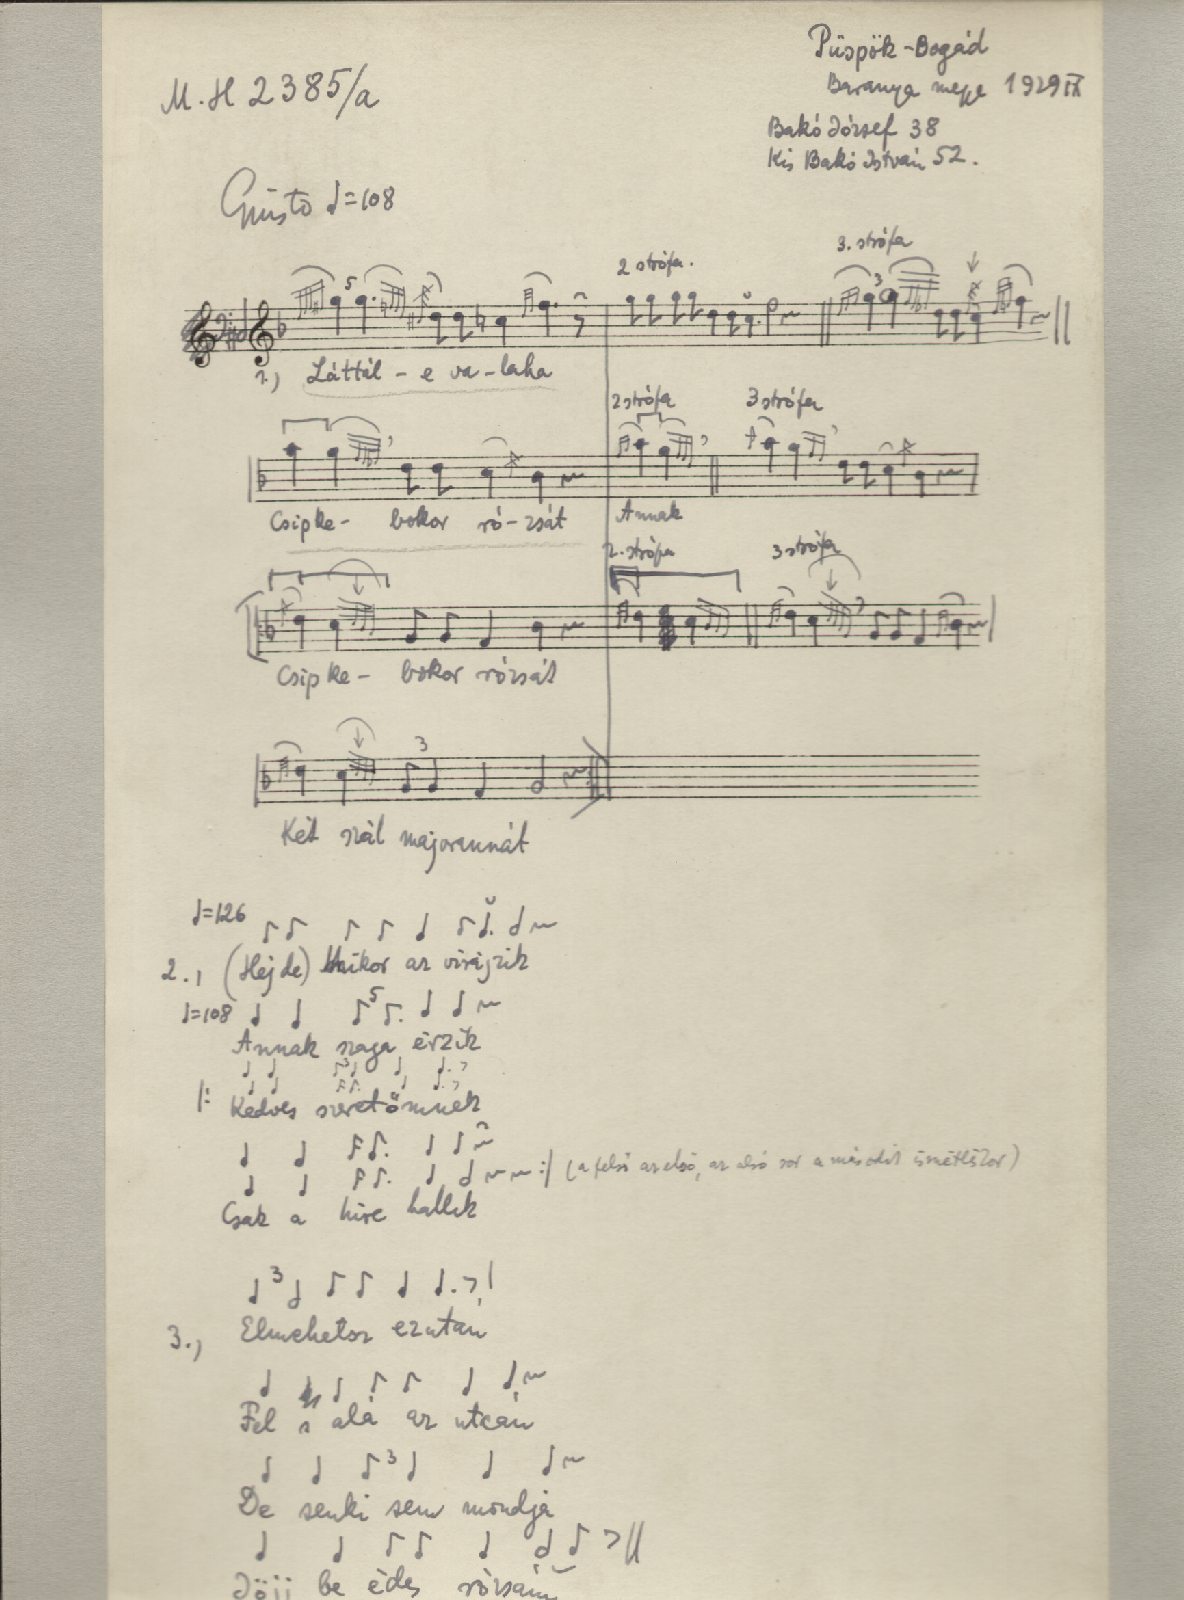 M.H 2385/a
Püspök-Bogád
Baranya megye 1929 IX
Bakó József 38
Kis Bakó István 52.
Giusto ♩=108
2 strófa.
3. strófa
5
3
1, Láttál-e va-laha
2 strófa
3 strófa
Csipke- bokor ró-zsát
Annak
2. strófa
3 strófa
Csipke- bokor rózsát
3
Két szál majorannát
♩=126
2., (Hejde) Mikor az virágzik
♩=108
5
Annak szaga érzik
3
|: Kedves szeretőmnek
:| (a felső az első, az alsó sor a második ismétléskor)
Csak a hire hallik
3
3., Elmehetsz ezután
Fel s alá az utcán
3
De senki sem mondja
Jöjj be édes rózsám